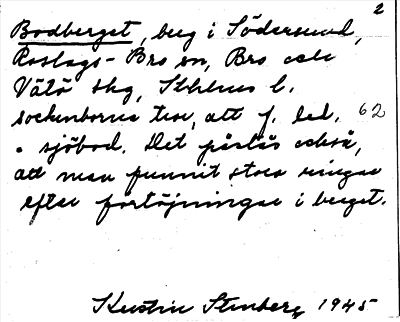 2
Bodberget, berg i Södersund,
Roslags-Bro sn, Bro och
Vätö skg, Sthlms l.
sockenborna tro, att f. led. 62
= sjöbod. Det påstås också,
att man funnit stora ringar
efter förtöjningar i berget.
Kerstin Stenberg 1945